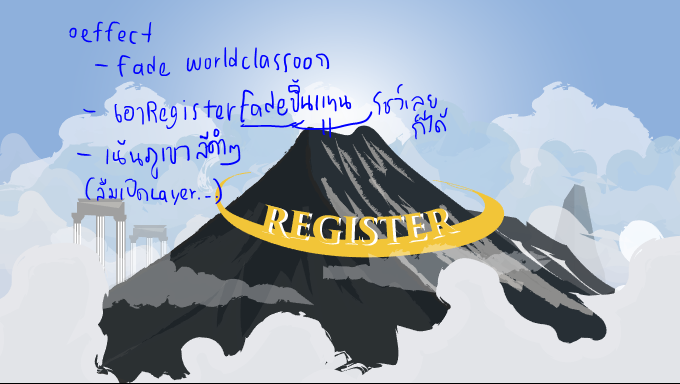 oeffect
- Fade worldclassroon
- เอาRegisterFadeขึ้นแทน โชว์เลย
ก็ได้
- เน้นภูเขา สีดำๆ
(ลืมเปิดLayer...)
REGISTER